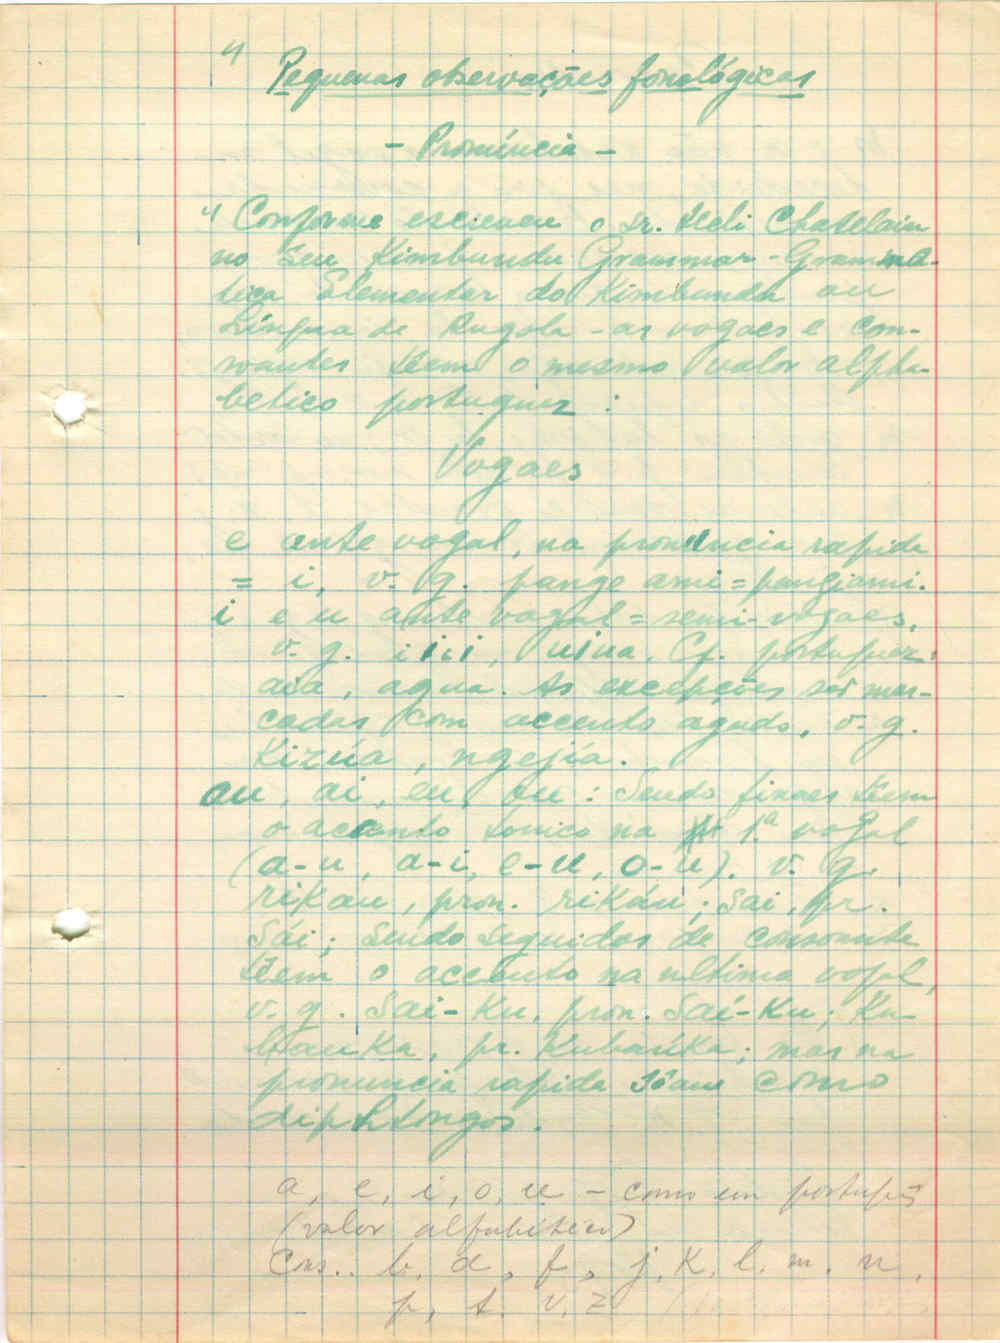 4
Pequenas observações fonológicas
- Pronúncia -
" Conforme escreveu o sr. Heli Chatelain
no seu Kimbundu Grammar - Gramma-
tica Elementar do Kimbundu ou
Língua de Angola - as vogaes e con-
soantes teem o mesmo valor alpha-
betico portuguez :
Vogaes
e ante vogal, na pronuncia rapida
= i, v. g. pange ami = pangiami.
i e u ante vogal = semi-vogaes,
v. g. iiii, uiua. Cf. portuguez:
aia, agua. As excepções são mar-
cadas com accento agudo, v. g.
Kizúa, ngejía.
au, ai, eu, ou : Sendo finaes teem
o accento tonico na 1.ª vogal
(a-u, a-i, e-u, o-u). v. g.
rikau, pron. rikáu; sai, pr.
sái; sendo seguidos de consoante
teem o accento na ultima vogal,
v. g. Sai-Ku, pron. Saí-Ku; Ku-
bauka, pr. Kubaúka; mas na
pronuncia rapida sôam como
diphtongos.
a, e, i, o, u - como em português
(valor alfabético)
Cons.. b, d, f, j, K, l, m, n,
p, t, v, z